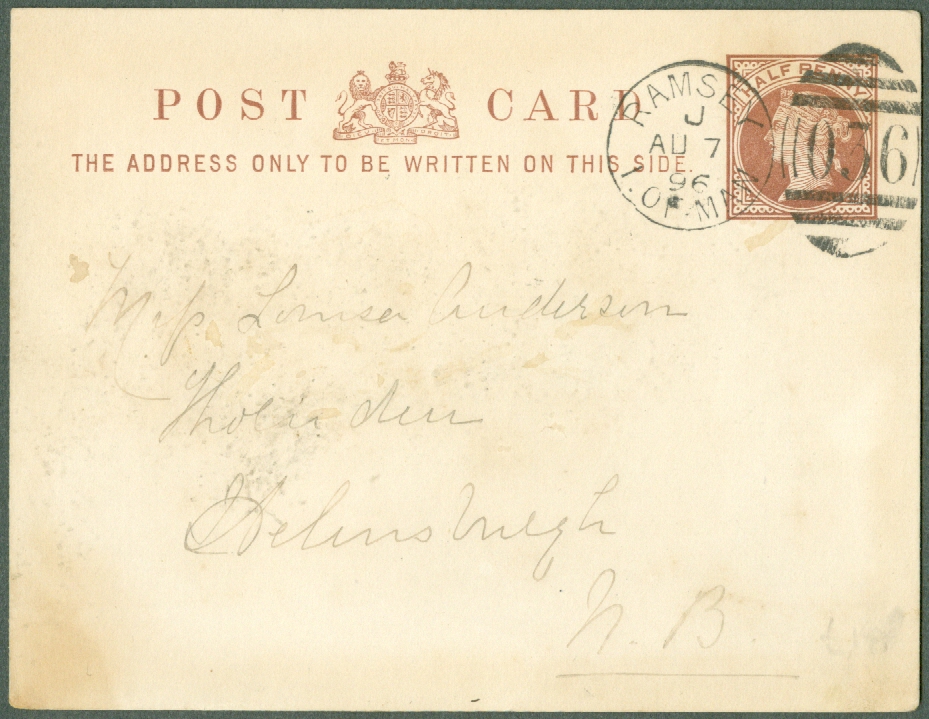 POST CARD
THE ADDRESS ONLY TO BE WRITTEN ON THIS SIDE.
HALF PENNY
RAMSEY
J
AU 7
96
I. OF. MAN
036
Miss Louisa Anderson
Helensburgh
N. B.